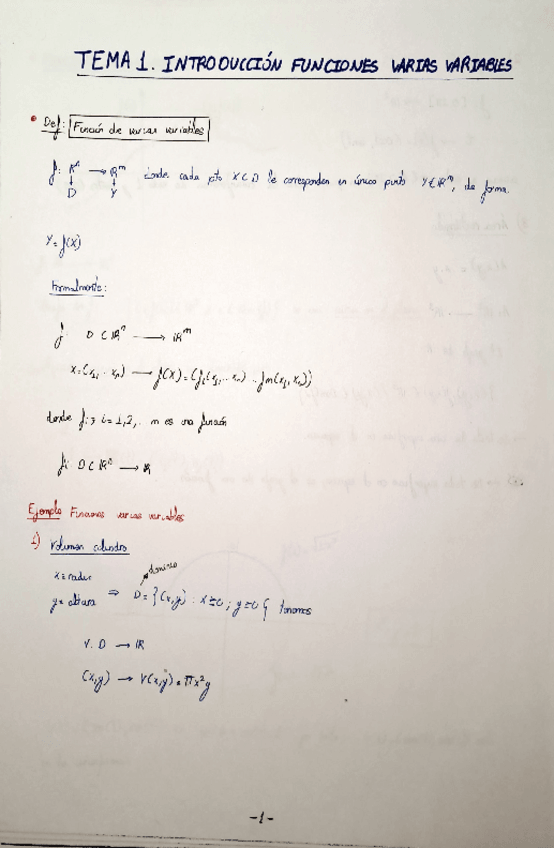 TEMA 1. INTRODUCCIÓN FUNCIONES VARIAS VARIABLES
• Def: Función de varias variables
f: Rⁿ → Rᵐ donde cada pto X ⊂ D le corresponden un único punto Y ∈ ℝᵐ, de forma
↓ ↓
D Y
Y = f(X)
Formalmente:
f: D ⊂ ℝⁿ → ℝᵐ
x = (x₁, ... xₙ) → f(X) = (f₁(x₁, ... xₙ) ... fm(x₁, xₙ))
donde fi y i = 1,2, .. m es una función
fi: D ⊂ ℝⁿ → ℝ
Ejemplo Funciones varias variables
1) Volumen cilindro
dominio
x = radio
y = altura ⇒ D = {(x,y) : x ≥ 0 ; y ≥ 0} tenemos
V. D → ℝ
(x,y) → V(x,y) = πx²y
-1-